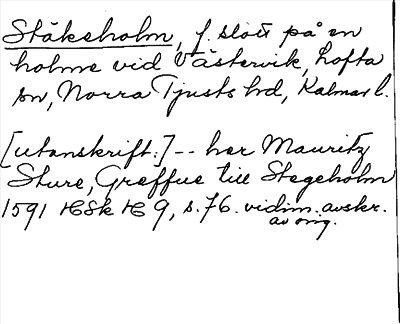 Stäkeholm, f. slott på en
holme vid Västervik, Lofta
sn, Norra Tjusts hd, Kalmar l.
[utanskrift:] -- her Mauritz
Sture, Greffue till Stegeholm
1591 HSk H 9, s. 76. vidim. avskr.
av orig.